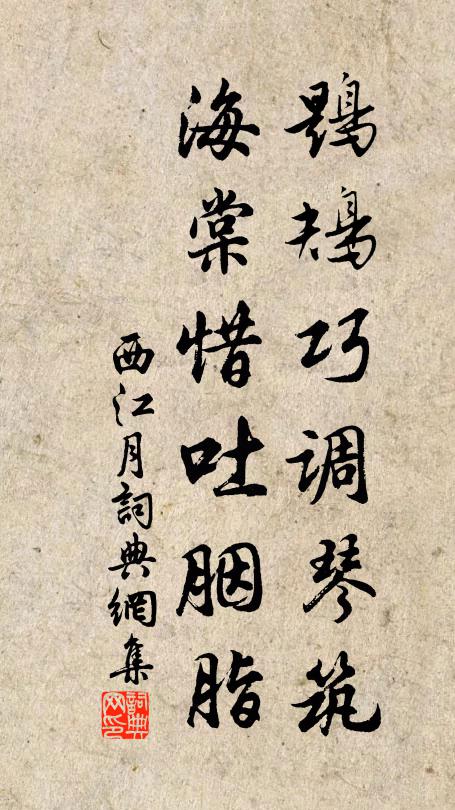 鶗鴂巧调琴筑
海棠惜吐胭脂
西江月詞典網集
詞典网印